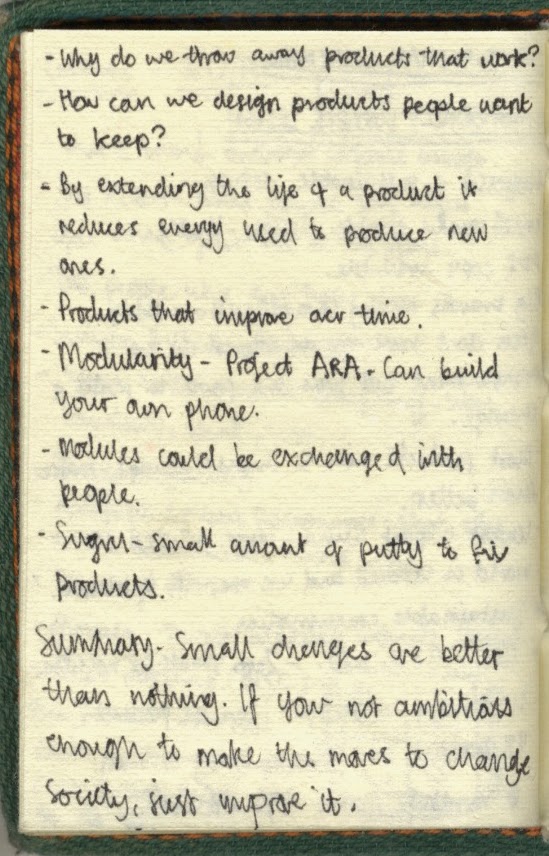 - Why do we throw away products that work?
- How can we design products people want
to keep?
- By extending the life of a product it
reduces energy used to produce new
ones.
- Products that improve over time.
- Modularity - Project ARA. Can build
your own phone.
- Modules could be exchanged with
people.
- Sugru - small amount of putty to fix
products.
Summary - Small changes are better
than nothing. If your not ambitious
enough to make the moves to change
society, just improve it.